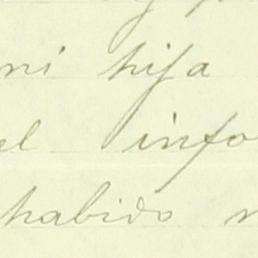 mi hija
el info
habido